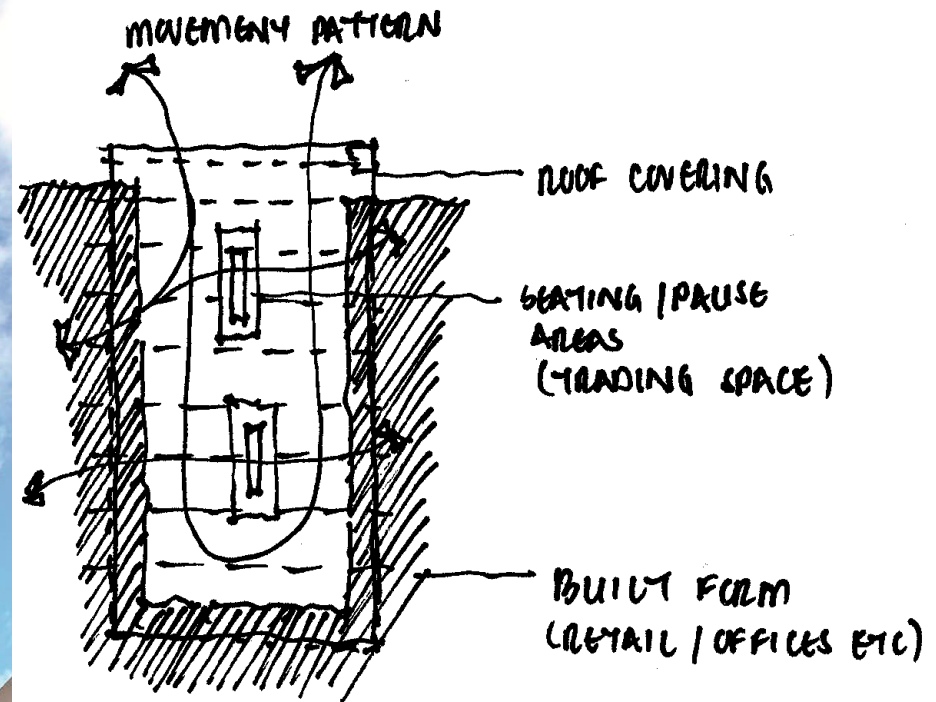 MOVEMENT PATTERN
ROOF COVERING
SEATING / PAUSE
AREAS
(TRADING SPACE)
BUILT FORM
(RETAIL / OFFICES ETC)